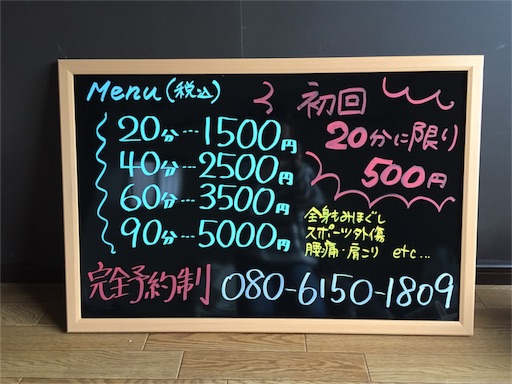 Menu (税込)
20分…1500円
40分…2500円
60分…3500円
90分…5000円
初回
20分に限り
500円
全身もみほぐし
スポーツ外傷
腰痛・肩こり etc...
完全予約制 080-6150-1809